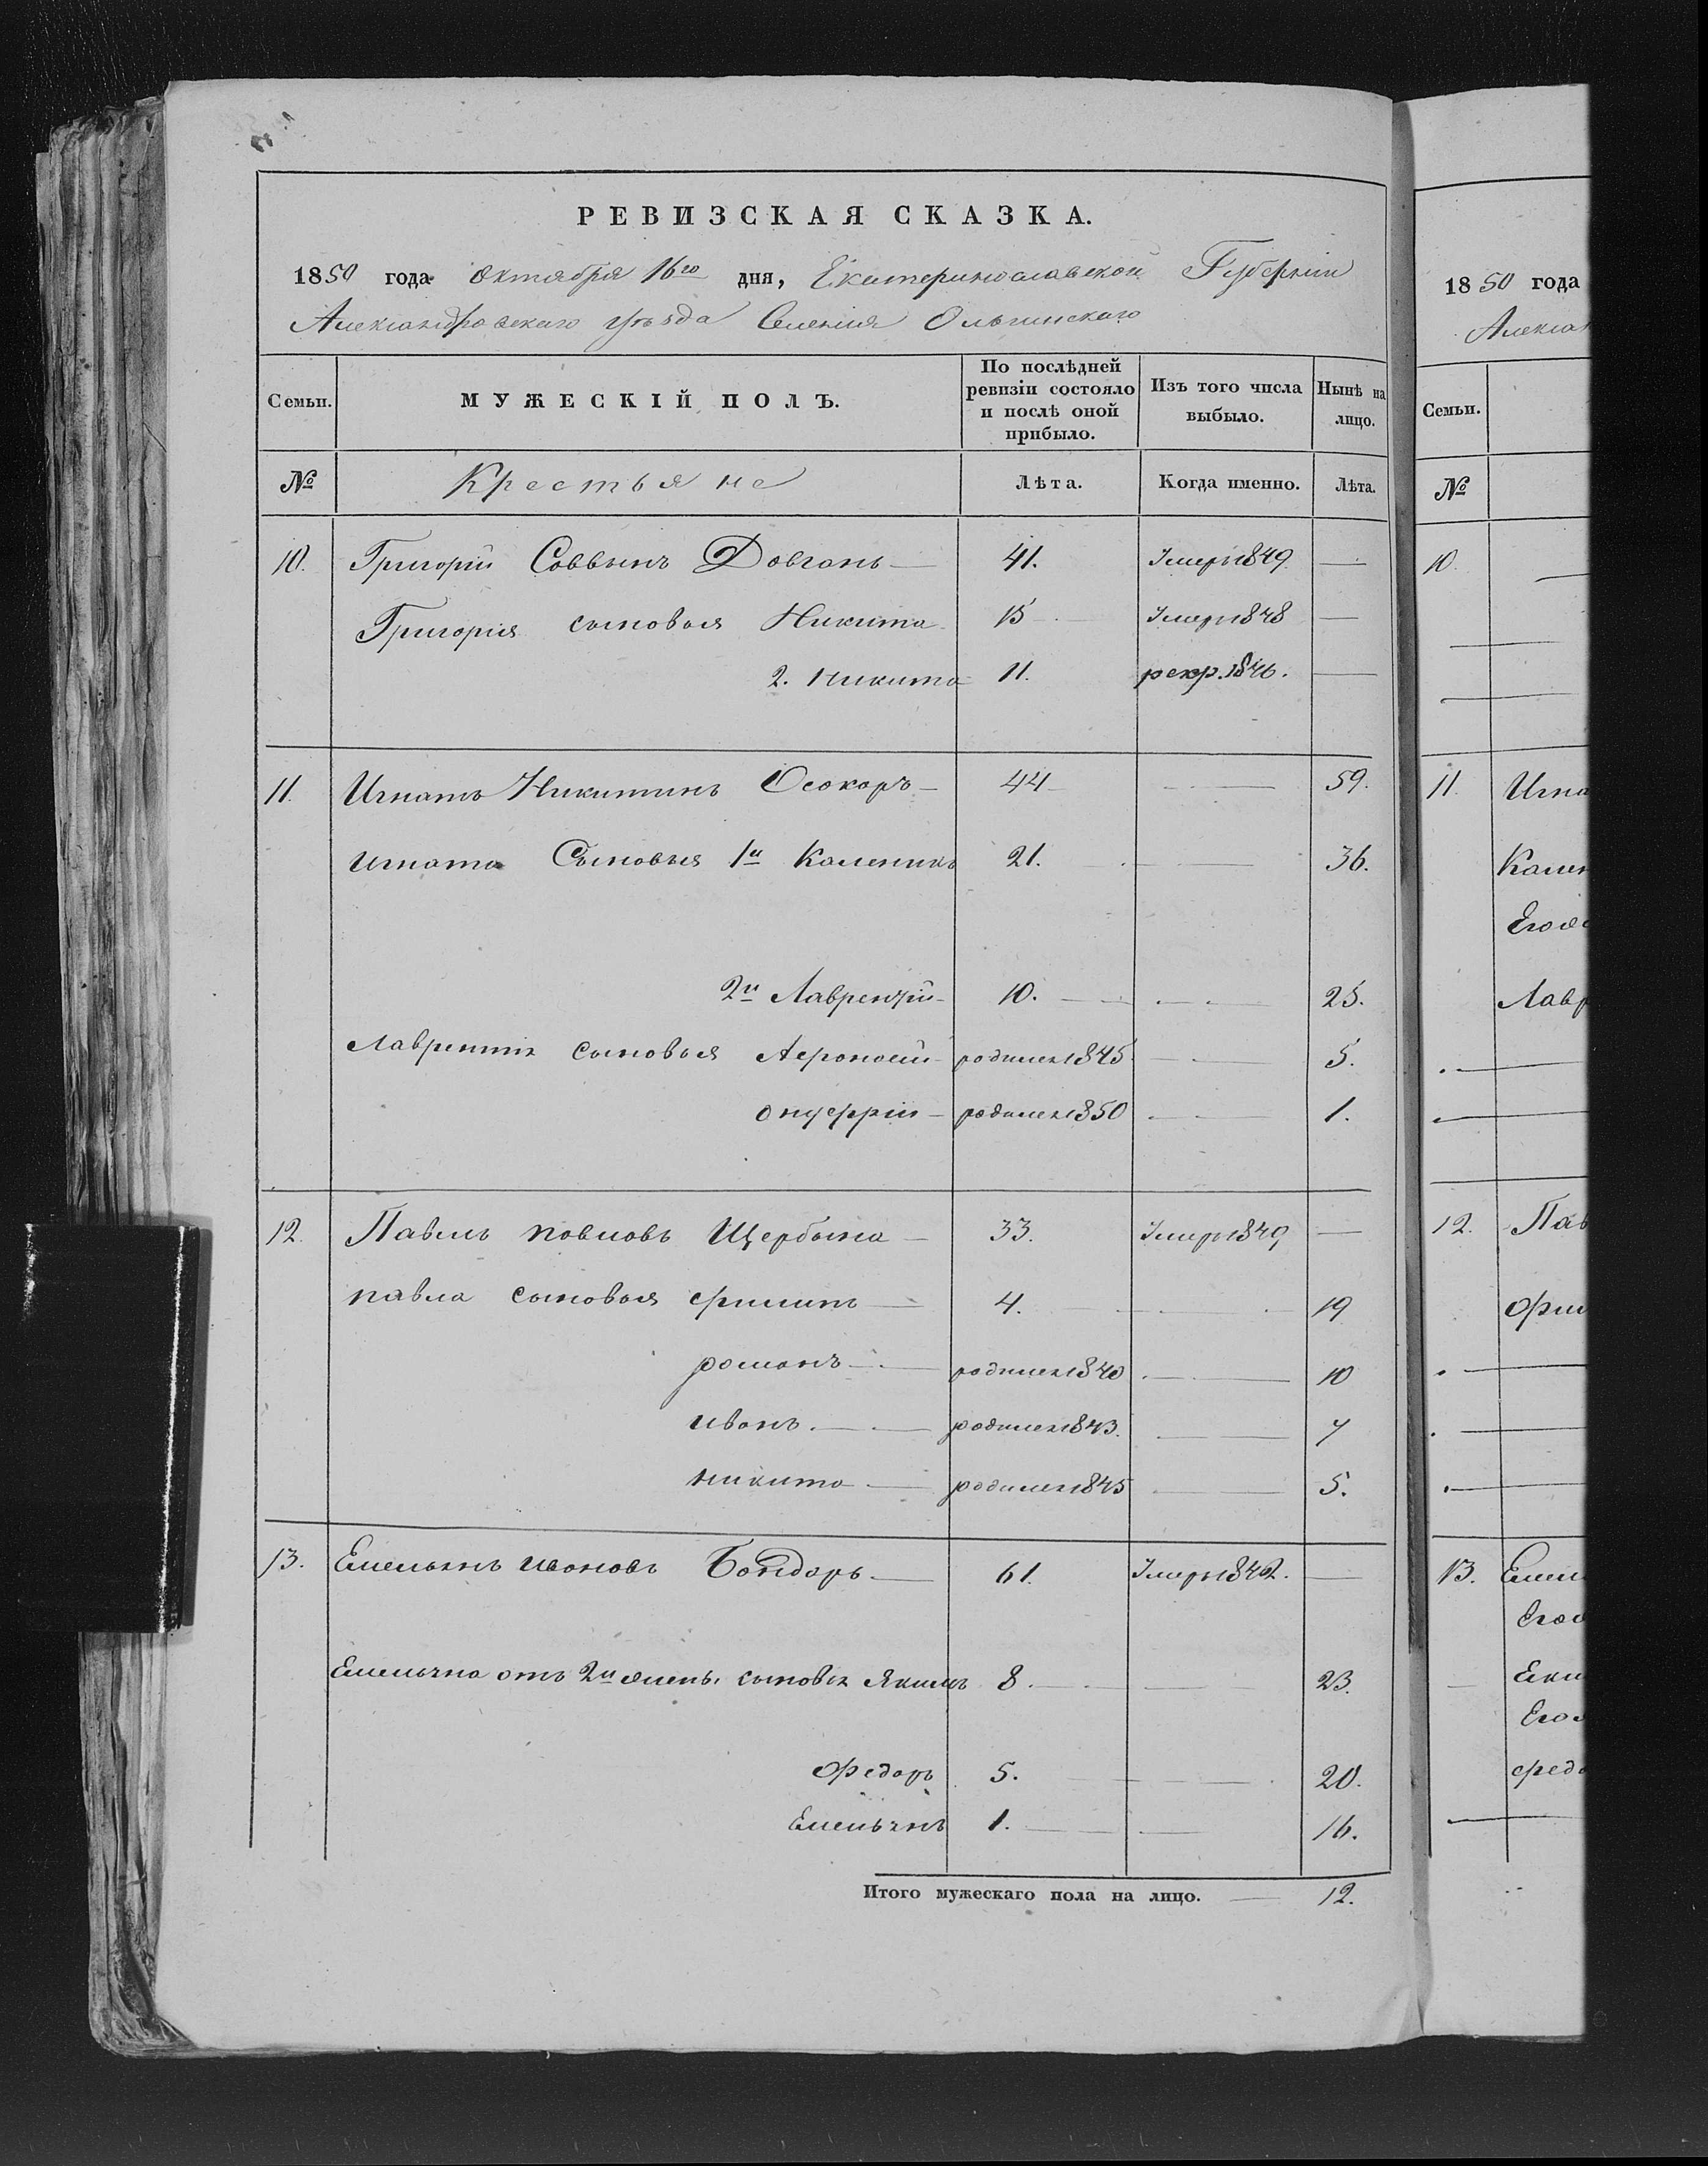 РЕВИЗСКАЯ СКАЗКА.
1850 года Октября 16го дня, Екатеринославской Губерніи
Александровскаго уѣзда Селенія Ольгинскаго
Семьи. МУЖЕСКІЙ ПОЛЪ. По послѣдней ревизіи состояло и послѣ оной прибыло. Изъ того числа выбыло. Нынѣ на лицо.
№ Крестьяне Лѣта. Когда именно. Лѣта.
10. Григорій Саввинъ Довгань — 41. Умеръ 1849 —
Григорія сыновья Никита 15 Умеръ 1848 —
2. Никита 11. рекр. 1846. —
11. Игнатъ Никитинъ Осокоръ — 44 — 59.
Игната Сыновья 1й Каленикъ 21. — 36.
2й Лаврентій — 10. — 25.
Лаврентія сыновья Афонасій — родился 1845 — 5.
Онуфрій — родился 1850 — 1.
12. Павелъ Павловъ Щербина — 33. Умеръ 1849 —
Павла сыновья Филипъ — 4. — 19
Романъ — родился 1840 — 10
Иванъ. — родился 1843. — 7
Никита — родился 1845 — 5.
13. Емельянъ Ивановъ Бондарь. — 61. Умеръ 1842. —
Емельяна отъ 2й жены сыновья Якимъ 8. — 23.
Федоръ 5. — 20.
Емельянъ 1. — 16.
Итого мужескаго пола на лицо. — 12.
1850 года
Алексан
Семьи.
№
10.
11. Игна
Кален
Лавр
12. Пав
Фили
13. Емел
Федо